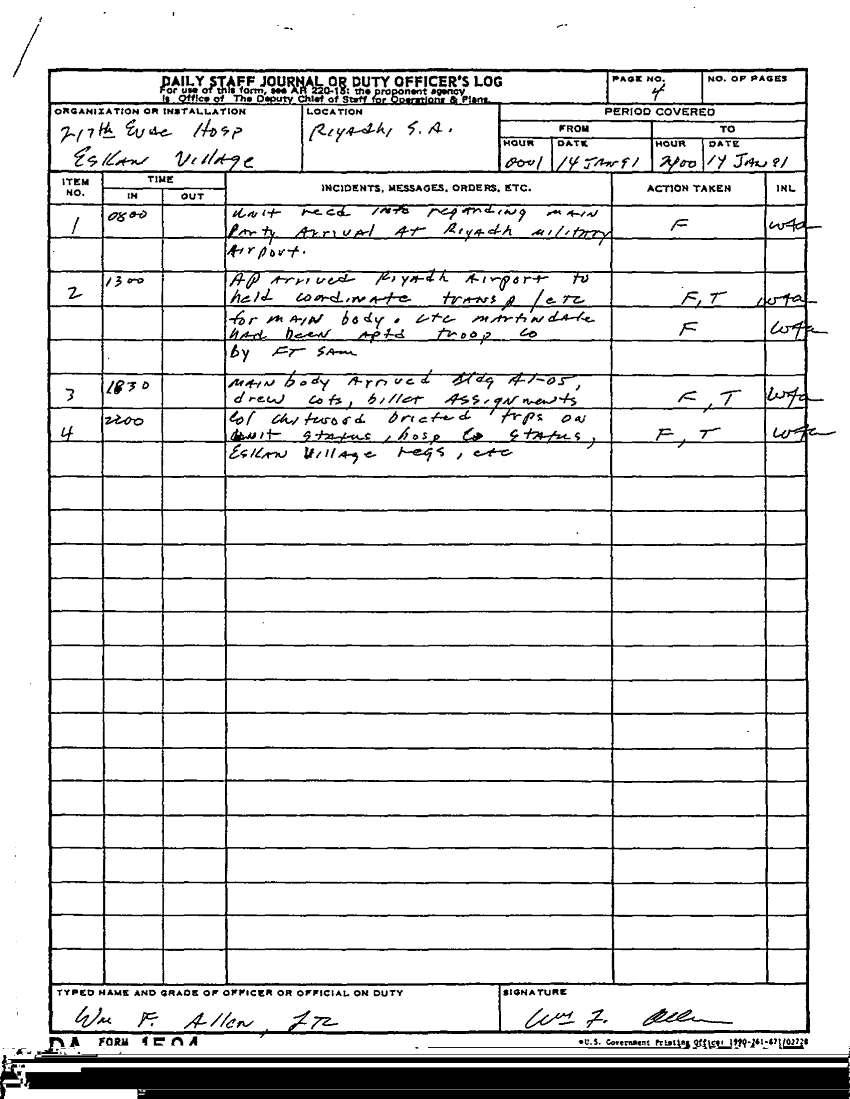 DAILY STAFF JOURNAL OR DUTY OFFICER'S LOG
For use of this form, see AR 220-15; the proponent agency
is Office of The Deputy Chief of Staff for Operations & Plans.
PAGE NO.
4
NO. OF PAGES
ORGANIZATION OR INSTALLATION
217th Evac Hosp
Eskan Village
LOCATION
Riyadh, S.A.
PERIOD COVERED
FROM
TO
HOUR DATE HOUR DATE
0001 14 JAN 91 2400 14 JAN 91
ITEM NO.
TIME
IN OUT
INCIDENTS, MESSAGES, ORDERS, ETC.
ACTION TAKEN
INL
1 0800 Unit recd info regarding main
Party Arrival At Riyadh military F wfa
Airport.
2 1300 AP Arrived Riyadh Airport to
held coordinate transp/etc F, T wfa
for main body. LTC Martindale F wfa
had been aptd troop Co
by FT Sam
3 1830 Main body Arrived Bldg A1-05,
drew cots, billet Assignments F, T wfa
4 2200 Col Chitwood briefed trps on
unit status, hosp Co status, F, T wfa
Eskan Village regs, etc
TYPED NAME AND GRADE OF OFFICER OR OFFICIAL ON DUTY
Wm F. Allen, LTC
SIGNATURE
Wm F. Allen
DA FORM 1594
*U.S. Government Printing Office: 1990-261-871/02728